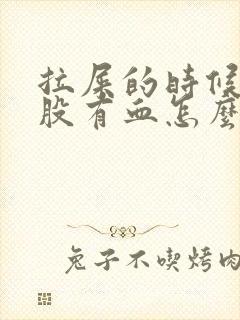 拉屎的時候
股有血怎麼
兔子不喫烤肉